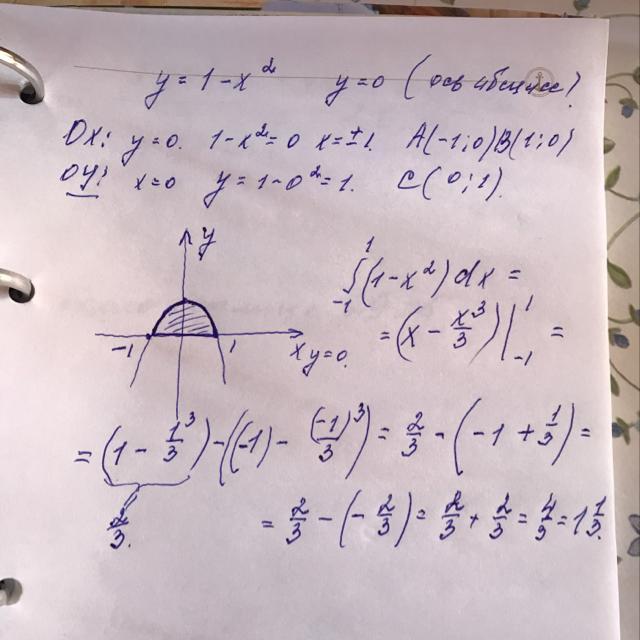 y = 1 - x² y = 0 (ось абсцисс)
Ox: y = 0. 1 - x² = 0 x = ±1. A(-1; 0) B(1; 0)
OY: x = 0 y = 1 - 0² = 1. C(0; 1).
y
-1 1 x y = 0.
∫₋₁¹ (1 - x²) dx =
= (x - x³/3) |₋₁¹ =
= (1 - 1³/3) - ((-1) - (-1)³/3) = 2/3 - (-1 + 1/3) =
2/3.
= 2/3 - (-2/3) = 2/3 + 2/3 = 4/3 = 1 1/3.